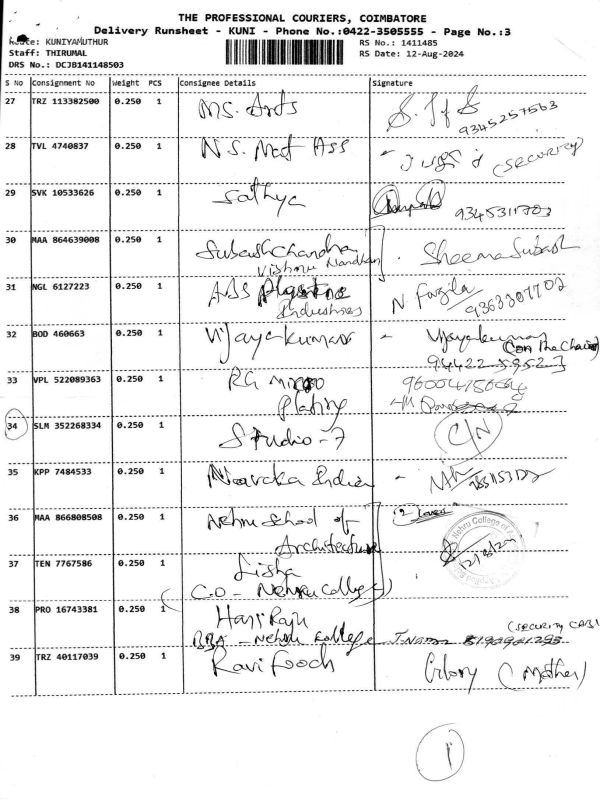 THE PROFESSIONAL COURIERS, COIMBATORE
Delivery Runsheet - KUNI - Phone No.:0422-3505555 - Page No.:3
Route: KUNIYAMUTHUR RS No.: 1411485
Staff: THIRUMAL RS Date: 12-Aug-2024
DRS No.: DCJB141148503
S No Consignment No Weight PCS Consignee Details Signature
27 TRZ 113382500 0.250 1 MS. Arts
9345257563
28 TVL 4740837 0.250 1 N S. Mat Ass (SECURITY)
29 SVK 10533626 0.250 1 Sathya
30 MAA 864639008 0.250 1 Subash Chandra Sheema Subash
Vishnu Nandhan
31 NGL 6127223 0.250 1 ABS Plastine N Fazila 9363307702
Industries
32 BOD 460663 0.250 1 Vijayakumar - Vijayakumar
33 VPL 522089363 0.250 1 RG micro
plating
34 SLM 352268334 0.250 1 Studio-7 C/N
35 KPP 7484533 0.250 1 India
36 MAA 866808508 0.250 1 Nehru School of
Architecture
37 TEN 7767586 0.250 1 Lisha
(C.O - Nehru College)
Nehru College of
12/8/24
38 PRO 16743381 0.250 1 Hari Raju
BBA - Nehru College (SECURITY
39 TRZ 40117039 0.250 1 Ravi Glory (Mother)
1